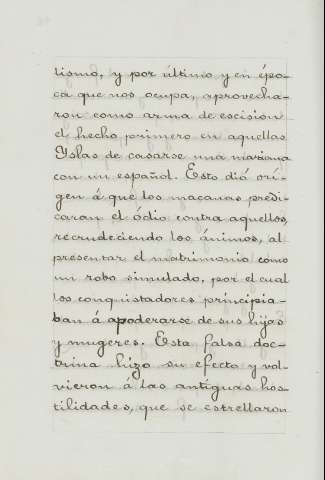 tismo, y por último y en épo-
ca que nos ocupa, aprovecha-
ron como arma de escisión
el hecho primero en aquellas
Yslas de casarse una mariana
con un español. Esto dió orí-
gen á que los macanas predi-
caran el ódio contra aquellos,
recrudeciendo los ánimos, al
presentar el matrimonio como
un robo simulado, por el cual
los conquistadores principia-
ban á apoderarse de sus hijas
y mugeres. Esta falsa doc-
trina hizo su efecto y vol-
vieron á las antiguas hos-
tilidades, que se estrellaron